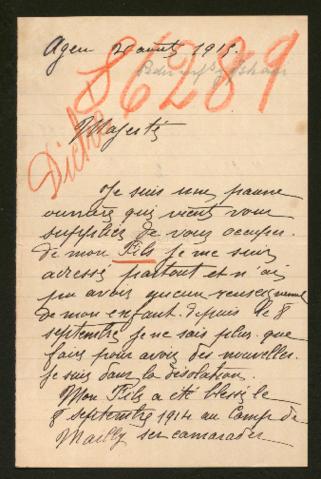 Agen 2 août 1915.
86289
Majesté
Diche
Je suis une pauvre
ouvrière qui vient vous
supplier de vous occuper
de mon Fils je me suis
adressé partout et n'ai
pu avoir aucun renseignement
de mon enfant depuis le 8
septembre je ne sais plus que
faire pour avoir des nouvelles.
je suis dans la désolation.
Mon Fils a été blessé le
8 septembre 1914 au Camp de
Mailly ses camarades